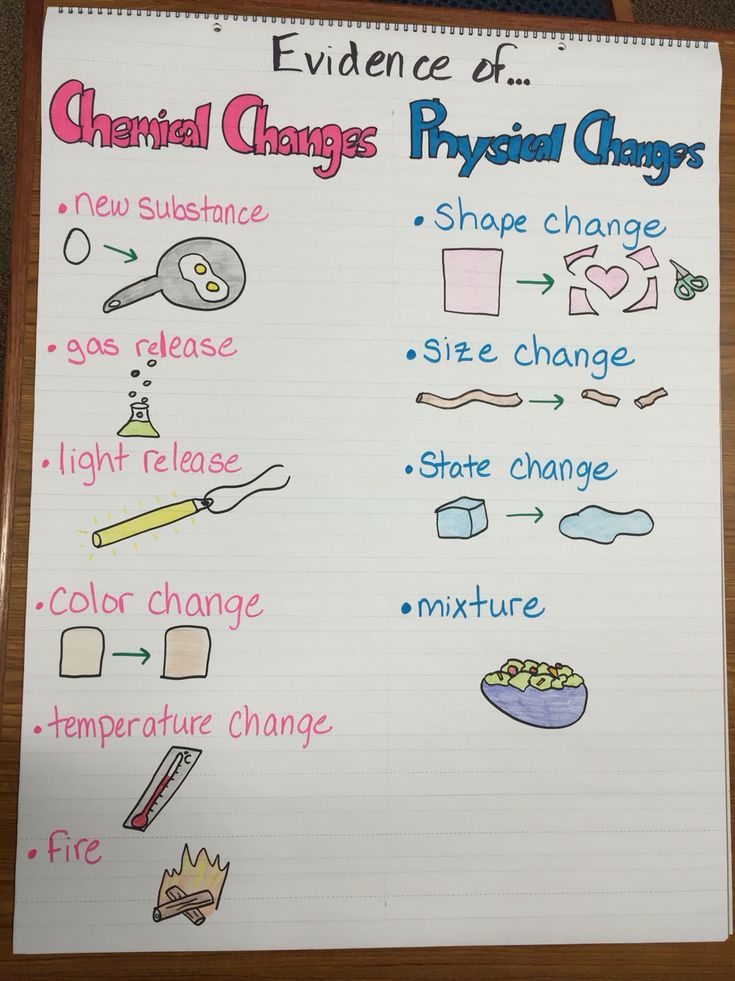 Evidence of...
Chemical Changes
• new substance
• gas release
• light release
• color change
• temperature change
°C
• fire
Physical Changes
• Shape change
• Size change
• State change
• mixture